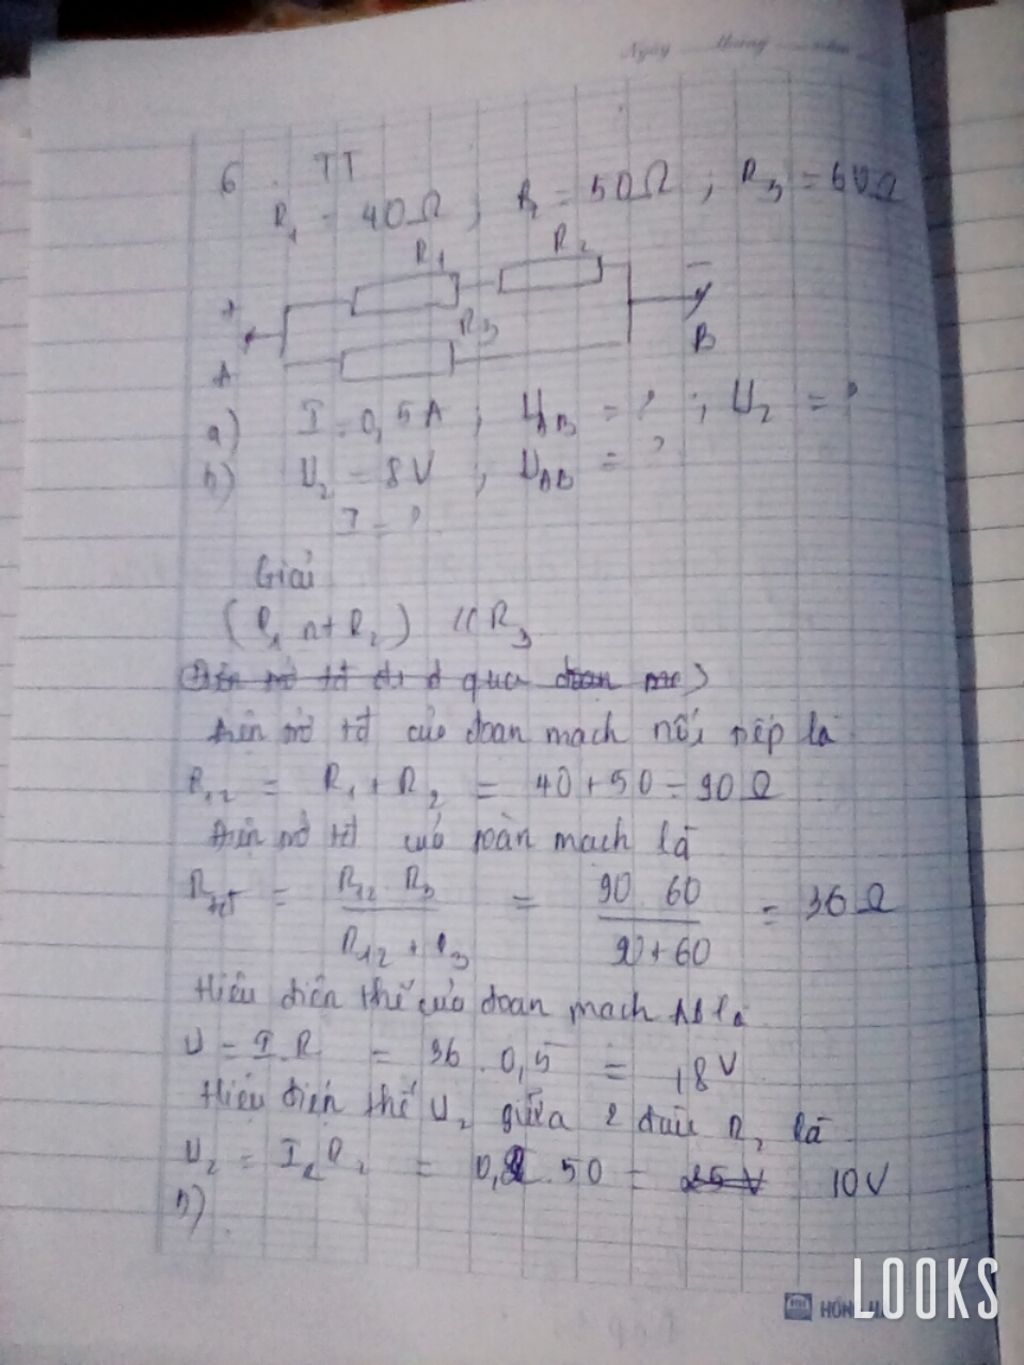 Ngày tháng năm
6. TT
R1 = 40Ω ; R2 = 50Ω ; R3 = 60Ω
R1 R2
+ −
R3
A B
a) I = 0,5A ; UAB = ? ; U2 = ?
b) U2 = 8V ; UAB = ?
I = ?
Giải
(R1 nt R2) // R3
Điện trở tđ của đoạn mạch nối tiếp là
R12 = R1 + R2 = 40 + 50 = 90Ω
Điện trở tđ của toàn mạch là
Rtđ = R12 . R3 / R12 + R3 = 90 . 60 / 90 + 60 = 36Ω
Hiệu điện thế của đoạn mạch AB là
U = I.R = 36 . 0,5 = 18V
Hiệu điện thế U2 giữa 2 đầu R2 là
U2 = I2 R2 = 0,2 . 50 = 25V 10V
b)
HỒNG HÀ
LOOKS